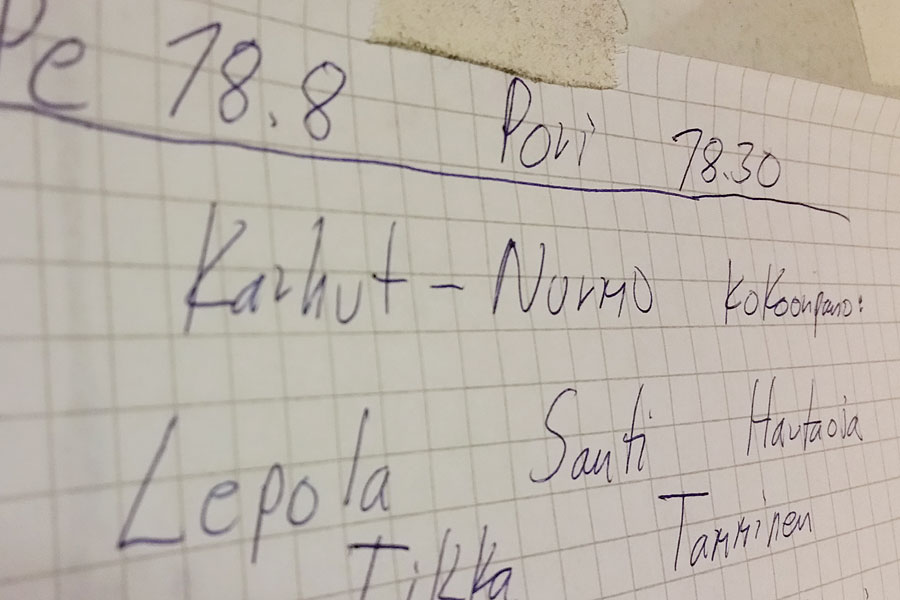 Pe 18.8 Pori 18.30
Karhut - Nurmo kokoonpano:
Lepola Santi Hautaoja
Tikka Tamminen